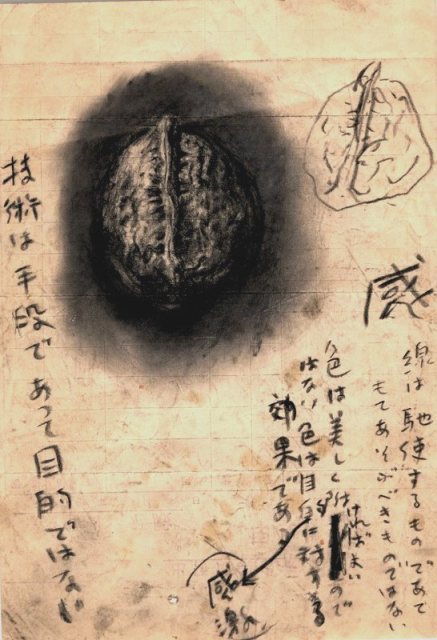 感
線は馳使するものであて
もてあそぶべきものではない
色は美しく附ければよいので
はない色は目的に対する
効果である
感
技術は手段であって目的ではない